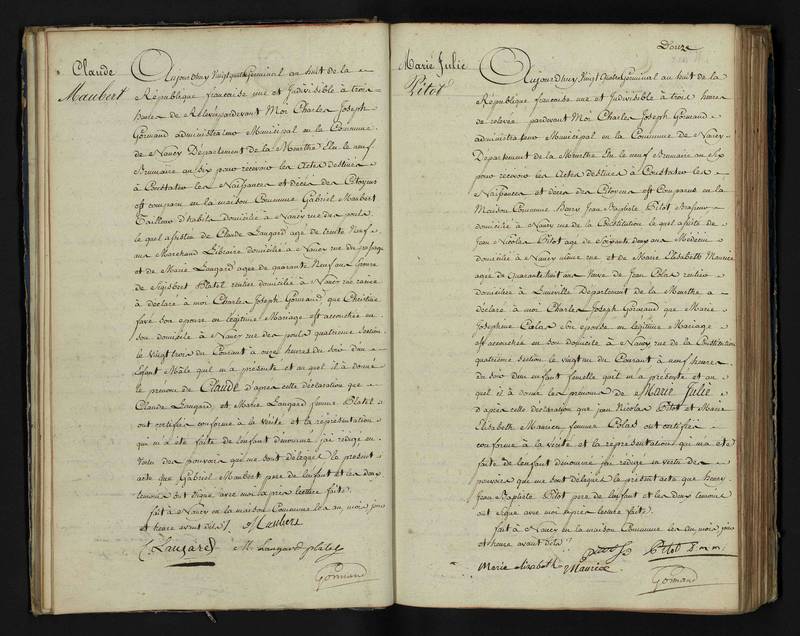 Claude
Maubert
Aujourdhuy Vingtquatre Germinal an huit de la
République francaise une et Indivisible à trois
heures de Relevé pardevant Moi Charles Joseph
Gormand administrateur Municipal en la Commune
de Nancy Département de la Meurthe Elu le neuf
Brumaire an six pour recevoir les actes destinés
à Constater les Naissances et décés des Citoyens
est comparu en la maison Commune Gabriel Maubert
Tailleur d'habits domicilié à Nancy rue des ponts
le quel assisté de Claude Laugard agé de trente Neuf
ans Marchand Libraire domicilié à Nancy rue du passage
et de Marie Laugard agée de quarante Neuf ans femme
de Sigisbert Platel rentier domicilié à Nancy rue
à déclaré à moi Charles Joseph Gormand que Christine
son epouse en légitime Mariage est accouchée en
son domicile à Nancy rue des ponts quatrieme section
le vingt trois du Courant à onze heures du soir d'un
Enfant Mâle qu'il m'a présenté et au quel il à donné
le prénom de CLAUDE d'après cette déclaration que
Claude Laugard et Marie Laugard femme Platel
ont certifiés conforme à la vérité et la représentation
qui m'a été faite de l'enfant dénommé j'ai rédigé en
Vertu des pouvoirs qui me sont délégués le présent
acte que Gabriel Maubert pere de l'enfant et les deux
temoins ont signé avec moi après lecture faite
fait à Nancy en la maison Commune les an, mois, jour
et heure avant dits /. Maubert
Laugard M Laugard platel
Gormand
Douze
Marie Julie
Pitot
Aujourdhuy Vingt Quatre Germinal an huit de la
République francaise une et Indivisible à trois heures
de relevée pardevant Moi Charles Joseph Gormand
administrateur Municipal en la Commune de Nancy
Département de la Meurthe Elu le neuf Brumaire an Six
pour recevoir les actes destinés à Constater les
Naissances et décés des Citoyens est Comparu en la
Maison Commune Henry Jean Baptiste Pitot
domicilié à Nancy rue de la Constitution le quel assisté de
Jean Nicolas Pitot agé de Soixante deux ans Médecin
domicilié à Nancy même rue et de Marie Elisabeth Maurice
agée de Quarante huit ans femme de Jean Colas rentier
domiciliée à Lunéville Departement de la Meurthe a
déclaré à moi Charles Joseph Gormand que Marie
Josephine Colas Son épouse en légitime Mariage
est accouchée en son Domicile à Nancy rue de la Constitution
quatriéme section le vingt un du Courant à neuf heures
du soir d'un enfant femelle qu'il m'a présenté et au
quel il à donné les prénoms de Marie Julie
d'après cette declaration que jean Nicolas Pitot et Marie
Elisabeth Maurice femme Colas ont certifiés
conforme à la vérité et la représentation qui m'a été
faite de l'enfant dénommé j'ai rédigé en vertu des
pouvoirs qui me sont délégués le présent acte que henry
Jean Baptiste Pitot pere de l'enfant et les Deux temoins
ont signé avec moi après lecture faite.
fait à Nancy en la maison Commune les an, mois, jour
et heure avant dits /.
Pitot
Marie elisabeth Maurice
Gormand